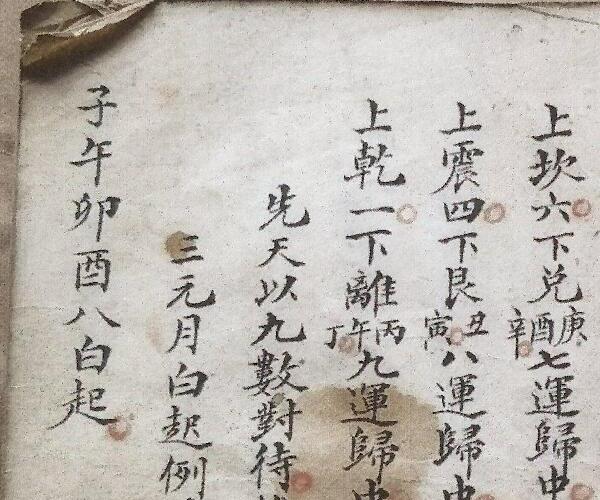 上坎六下兌庚酉辛七運歸中
上震四下艮丑寅八運歸中
上乾一下離丙午丁九運歸中
先天以九數對待
三元月白起例
子午卯酉八白起